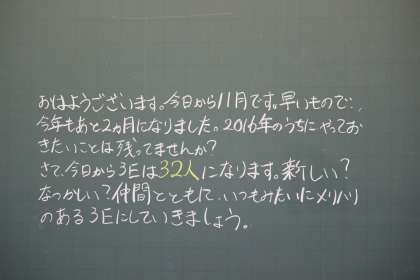 おはようございます。今日から11月です。早いもので、
今年もあと2ヵ月になりました。2016年のうちにやってお
きたいことは残ってませんか?
さて、今日から3Eは32人になります。新しい?
なつかしい?仲間とともに、いつもみたいにメリハリ
のある3Eにしていきましょう。